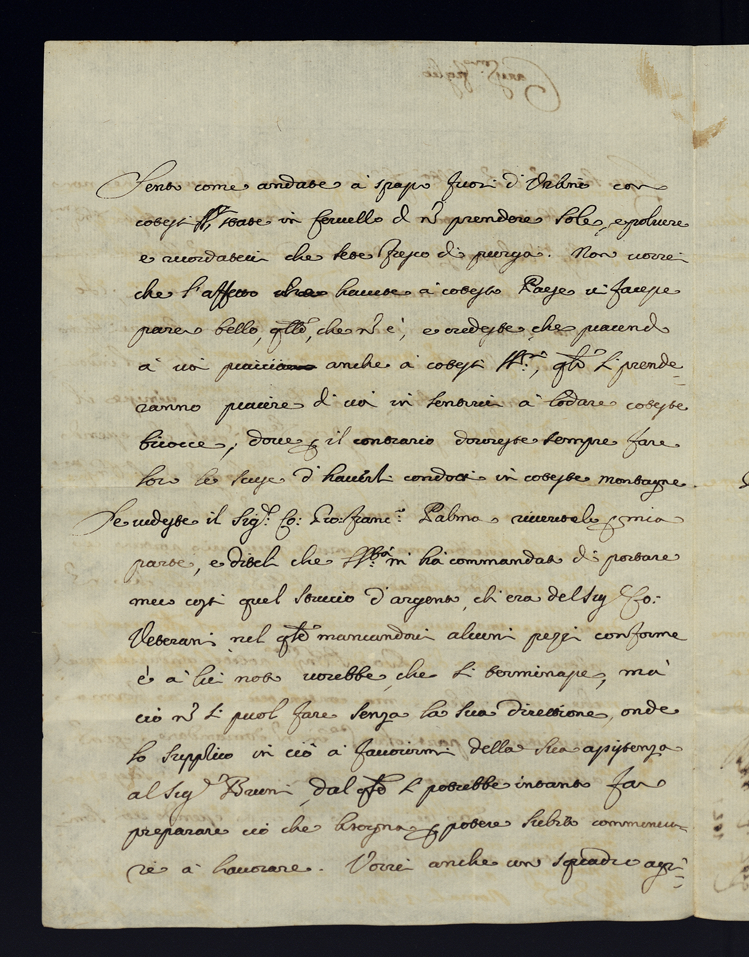 Car.mo figlio
Sento come andate à spasso fuori d'Urbino con
cotesti SS.ri state in cervello di nõ prendere sole, e polvere
e ricordatevi che sete fresco di purga. Non vorrei
che l'affetto havete à cotesto Paese vi facesse
parer bello, q̃llo, che nõ è, e credeste, che piacendo
à voi piaccia anche à cotesti SS.ri, q̃li si prende=
ranno piacere di voi in sentirvi à lodare coteste
bicocce, dove p il contrario dovreste sempre fare
loro le scuse d'haverli condotti in coteste montagne.
Se vedeste il Sig.r Co: Gio: Franc.o Palma riveritelo p mia
parte, e diteli che S. S.tà mi hà commandato di portare
meco costì quel stuccio d'argento, ch'era del Sig.r Co:
Veterani, nel q̃le mancandovi alcuni pezzi conforme
è à lui noto vorebbe, che si terminasse, mà
ciò nõ si puol fare senza la sua direttione, onde
lo supplico in ciò à favorirmi della sua assistenza
al Sig.r Bruni, dal q̃le si potrebbe intanto far
preparare ciò che bisogna p potere subito comminciar=
re à lavorare. Vorrei anche un squadro agri=